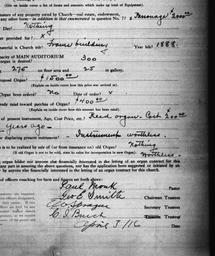 (Give on inside cover a list of Grants and amounts, which make up total of Equipment).
of any property owned by Church—real estate, endowment,
any other form—in addition to that enumerated in question No. 7? $ Parsonage $2000.00
Nothing
provided for? A
material is Church built? Frame building Year built? 1888.
capacity of MAIN AUDITORIUM 300
275 on floor area and 25 in gallery.
$1500.00
(Explain on inside cover how this cost has been raised).
Organ been ordered? No Date of order? X
already raised toward purchase of Organ?
$400.00
(Explain on inside cover how this amount has been raised).
of present instrument, Age, Cost price, etc.) Reed organ. Cost 200.00
years ago.
displacing present instrument? Instrument worthless.
is to be realized by sale of (or from insurance on) old Organ? Nothing
If Old Organ is not to be sold, state its value for incorporation in new Organ). Worthless.
organ builder nor anyone else financially interested in the letting of an organ contract has
any part in assuring the above questions, nor has the application been suggested or initiated by an
by anyone else financially interested in the letting of an organ contract for this church.
of officers vouching for facts and figures set forth above:
Paul Monk Pastor
Geo E Smith Chairman Trustees
Secretary Trustees
C. I. Burch Trustee
April 3/16 Date